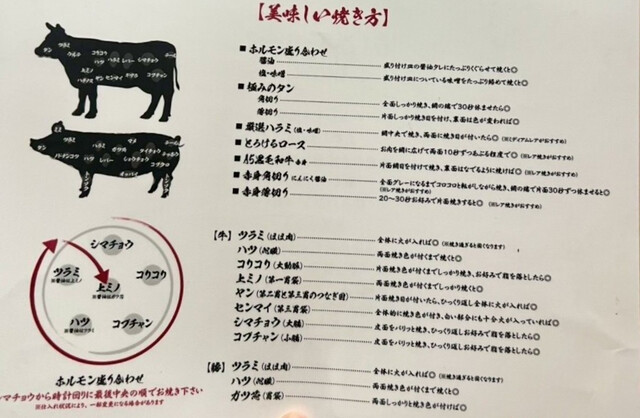 【美味しい焼き方】
■ ホルモン盛り合わせ
醤油 盛り付け皿の醤油タレにたっぷりくぐらせて焼く◎
塩・味噌 盛り付け皿についている味噌をたっぷり絡めて焼く◎
■ 極みのタン
角切り 全面しっかり焼き、網の端で30秒休ませたら◎
薄切り 片面しっかり焼き目を付け、裏面は色が変われば◎
■ 厳選ハラミ(塩・味噌) 網中央で焼き、両面に焼き目が付いたら◎(※ミディアムレアがおすすめ)
■ とろけるロース お肉を網に広げて両面10秒ずつあぶる程度で◎(※レア焼きがおすすめ)
■ A5黒毛和牛赤身 片面網目を付けて焼き、裏面はなでるように焼けば◎(※レア焼きがおすすめ)
■ 赤身角切りにんにく醤油 全面グレーになるまでコロコロと転がしながら焼き、網の端で片面30秒ずつ休ませると◎
(※レア焼きがおすすめ)
■ 赤身薄切り 20~30秒お好みで片面焼きすると◎(※レア焼きがおすすめ)
【牛】ツラミ(ほほ肉) 全体に火が入れば◎(※焼き過ぎると固くなります)
ハツ(心臓) 両面焼き色が付くまで焼くと◎
コリコリ(大動脈) 片面焼き色が付くまでしっかり焼き、お好みで脂を落としたら◎
上ミノ(第一胃袋) 両面焼き色が付くまでしっかり焼くと◎
ヤン(第二胃と第三胃のつなぎ目) 片面焼き目が付いたら、ひっくり返し全体に火が入れば◎
センマイ(第三胃袋) 全体的に焼き色が付き、白い部分にも十分火が入っていれば◎
シマチョウ(大腸) 皮面をパリッと焼き、ひっくり返しお好みで脂を落としたら◎
コプチャン(小腸) 皮面をパリッと焼き、ひっくり返しお好みで脂を落としたら◎
【豚】ツラミ(ほほ肉) 全体に火が入れば◎(※焼き過ぎると固くなります)
ハツ(心臓) 両面焼き色が付くまで焼くと◎
ガツ芯(胃袋) 両面しっかりと焼き色が付けば◎
シマチョウ
ツラミ
コリコリ
上ミノ
ハツ
コプチャン
ホルモン盛り合わせ
シマチョウから時計回りに最後中央の順でお焼き下さい
※仕入れ状況により、一部変更になる場合があります